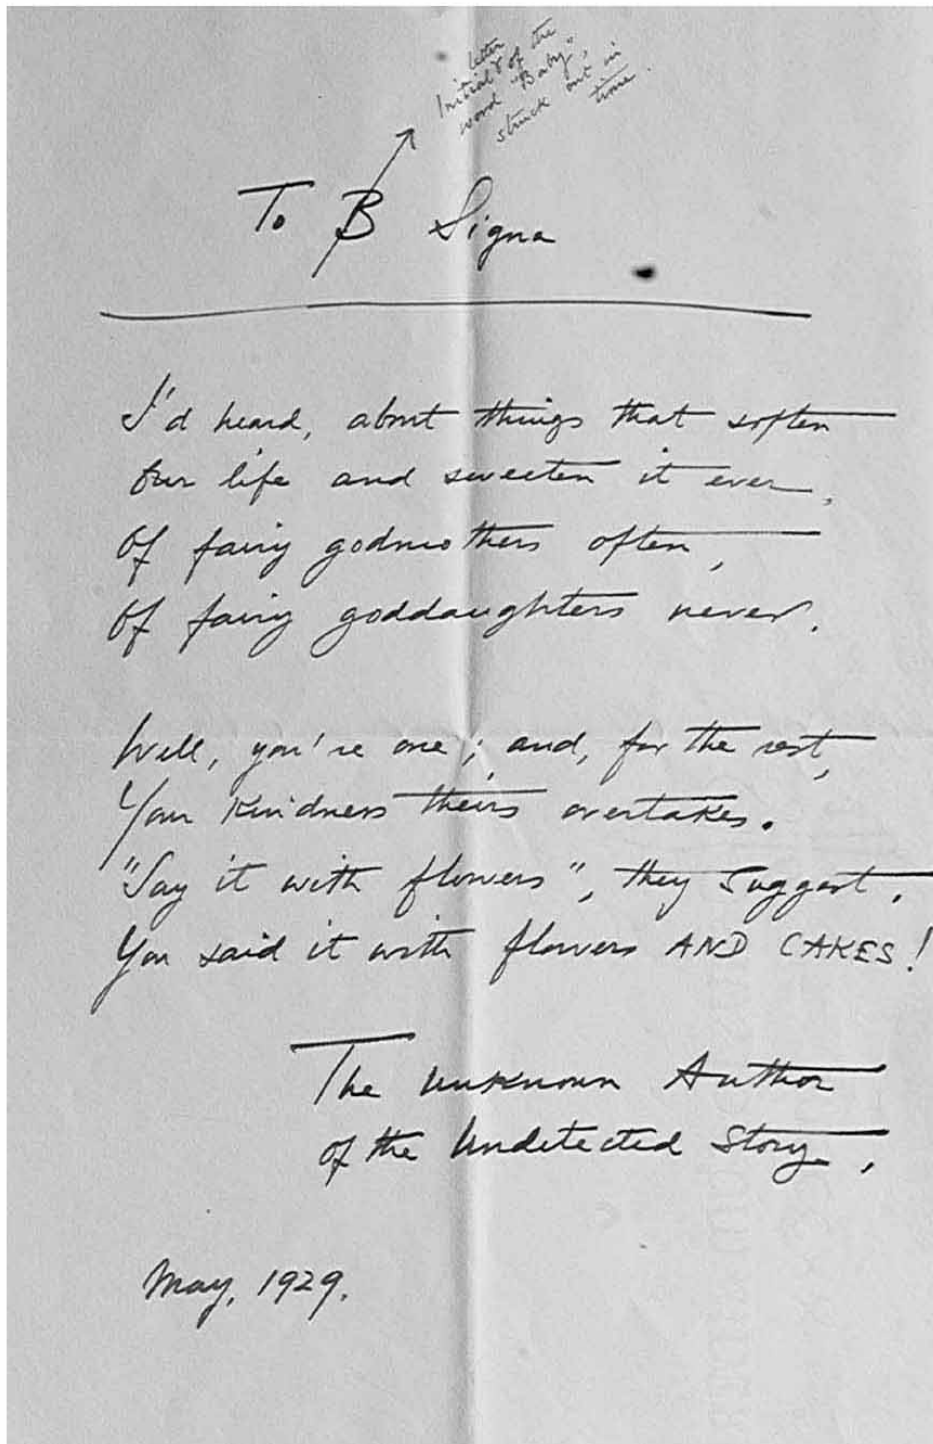 letter
Initial of the
word "Baby",
struck out in
time.
To B Signa
I'd heard, about things that soften
Our life and sweeten it ever,
Of fairy godmothers often,
Of fairy goddaughters never.
Well, you're one; and, for the rest,
Your kindness theirs overtakes.
"Say it with flowers", they suggest.
You said it with flowers AND CAKES!
The Unknown Author
of the Undetected Story.
May, 1929.